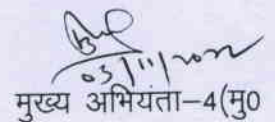 03/11/2022
मुख्य अभियंता–4(मु0